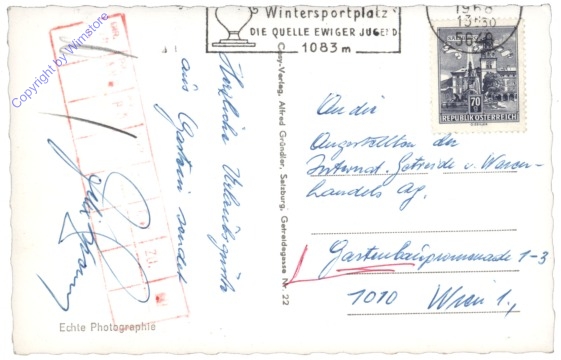 Wintersportplatz
DIE QUELLE EWIGER JUGEND
1083 m
1968
5640
70
REPUBLIK ÖSTERREICH
Herzliche Urlaubsgrüße
aus Gastein sendet
Cosy-Verlag, Alfred Gründler, Salzburg, Getreidegasse Nr. 22
An die
Angestellten der
Internat. Getreide u. Waren-
handels Ag.
Gartenbaupromenade 1-3
1010 Wien 1.,
Echte Photographie
Copyright by Wimstore